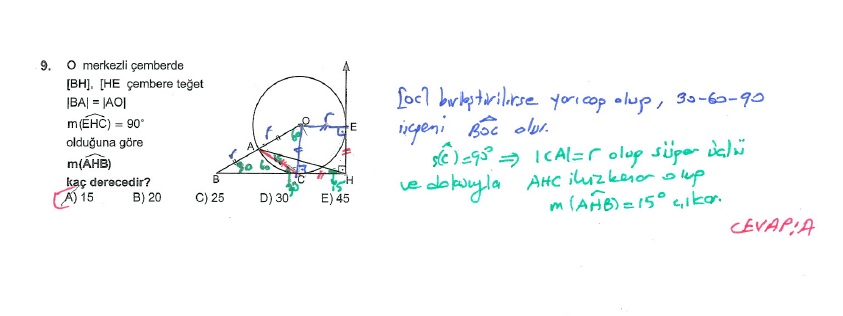 9. O merkezli çemberde
[BH], [HE çembere teğet
|BA| = |AO|
m(EHC) = 90°
olduğuna göre
m(AHB)
kaç derecedir?
A) 15 B) 20 C) 25 D) 30 E) 45
O
r
E
r
60
A
r
r
30 60
30
15
B
C
H
[OC] birleştirilirse yarıçap olup, 30-60-90
üçgeni BOC olur.
s(C)=90° ⇒ |CA|=r olup süper üçlü
ve dolayısıyla AHC ikizkenar olup
m(AHB)=15° çıkar.
CEVAP:A